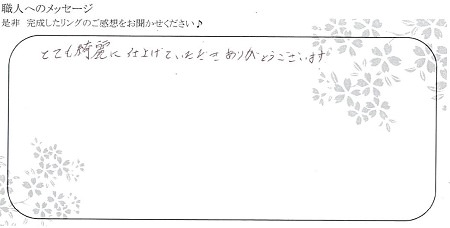 職人へのメッセージ
是非 完成したリングのご感想をお聞かせください♪
とても綺麗に仕上げていただきありがとうございます